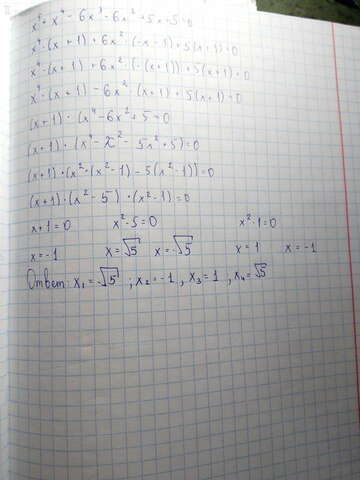 x⁵ + x⁴ - 6x³ - 6x² + 5x + 5 = 0
x⁴ · (x + 1) + 6x² · (-x - 1) + 5(x + 1) = 0
x⁴ · (x + 1) + 6x² · (-(x + 1)) + 5(x + 1) = 0
x⁴ · (x + 1) - 6x² · (x + 1) + 5(x + 1) = 0
(x + 1) · (x⁴ - 6x² + 5 = 0
(x + 1) · (x⁴ - x² - 5x² + 5) = 0
(x + 1) · (x² · (x² - 1) - 5(x² - 1)) = 0
(x + 1) · (x² - 5) · (x² - 1) = 0
x + 1 = 0 x² - 5 = 0 x² - 1 = 0
x = -1 x = √5 x = -√5 x = 1 x = -1
Ответ: x₁ = -√5 ; x₂ = -1 , x₃ = 1 , x₄ = √5